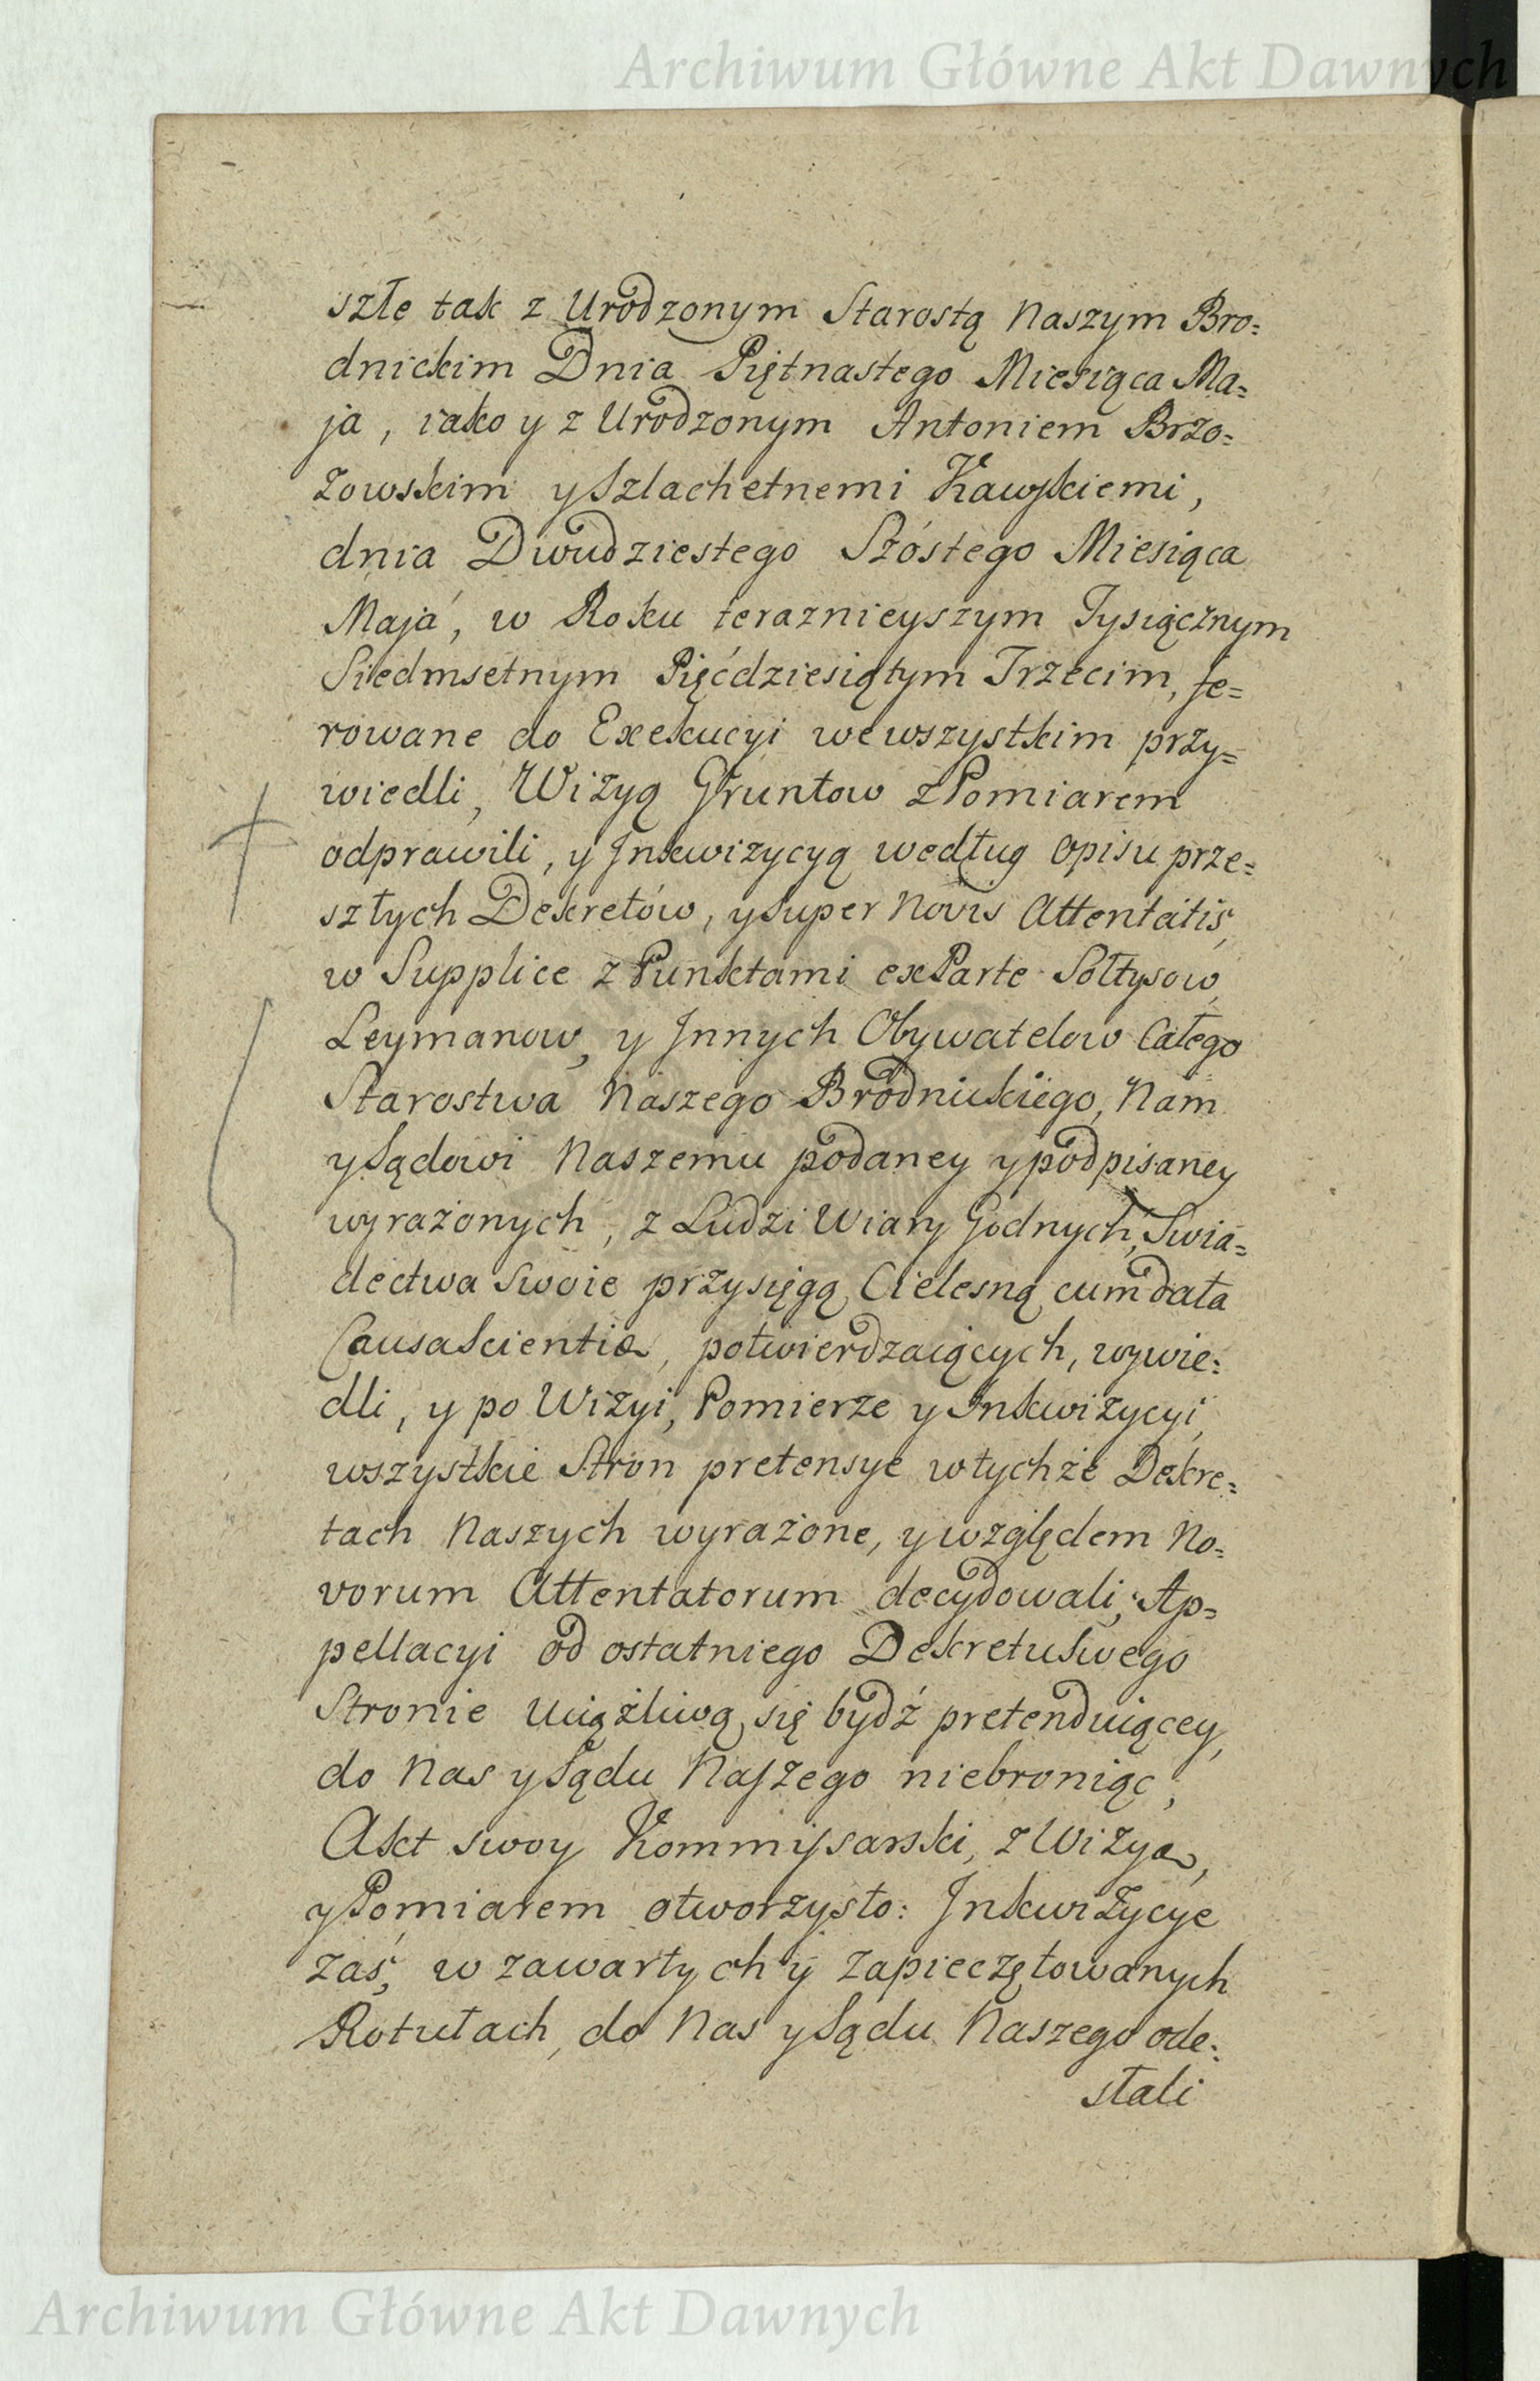 Archiwum Główne Akt Dawnych
szłe tak z Urodzonym Starostą Naszym Bro=
dnickim Dnia Piętnastego Miesiąca Ma=
ja, iako y z Urodzonym Antoniem Brzo=
zowskim y Szlachetnemi Kawskiemi,
dnia Dwudziestego Szóstego Miesiąca
Maja, w Roku teraznieyszym Tysiącznym
Siedmsetnym Pięćdziesiątym Trzecim, fe=
rowane do Exekucyi we wszystkim przy=
wiedli, Wizyą Gruntow z Pomiarem
odprawili, y Jnkwizycyą według Opisu prze=
szłych Dekretów, y super Novis Attentatis,
w Supplice z Punktami ex Parte Sołtysow,
Leymanow, y Jnnych Obywatelow Całego
Starostwa Naszego Brodnickiego, Nam
y Sądowi Naszemu podaney y podpisaney
wyrażonych, z Ludzi Wiary Godnych, Swia=
dectwa Swoie przysięgą Cielesną cum data
Causa Scientiæ, potwierdzaiących, wywie=
dli, y po Wizyi, Pomierze y Jnkwizycyi,
wszystkie Stron pretensye w tychże Dekre=
tach Naszych wyrażone, y względem No=
vorum Attentatorum decydowali, Ap=
pellacyi od ostatniego Dekretu Swego
Stronie Uciążliwą się bydź pretenduiącey,
do Nas y Sądu Naszego niebroniąc;
Akt swoy Kommissarski, z Wizyą,
y Pomiarem otworzysto: Jnkwizycye
zaś, w zawartych y zapieczętowanych
Rotułach, do Nas y Sądu Naszego ode=
słali
Archiwum Główne Akt Dawnych